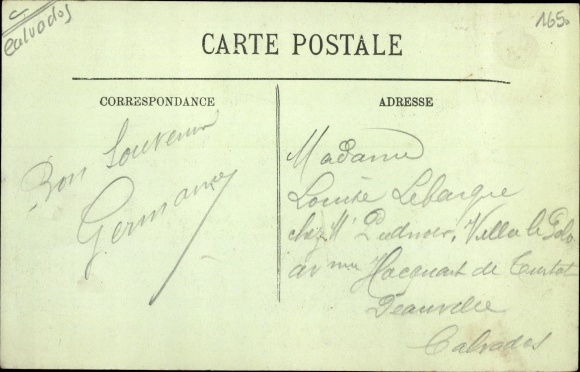 Calvados
1650
CARTE POSTALE
CORRESPONDANCE
ADRESSE
Bon Souvenir
Germaine
Madame
Louise Lebarque
chez Mr Villa le
Hocquart de Turtot
Deauville
Calvados